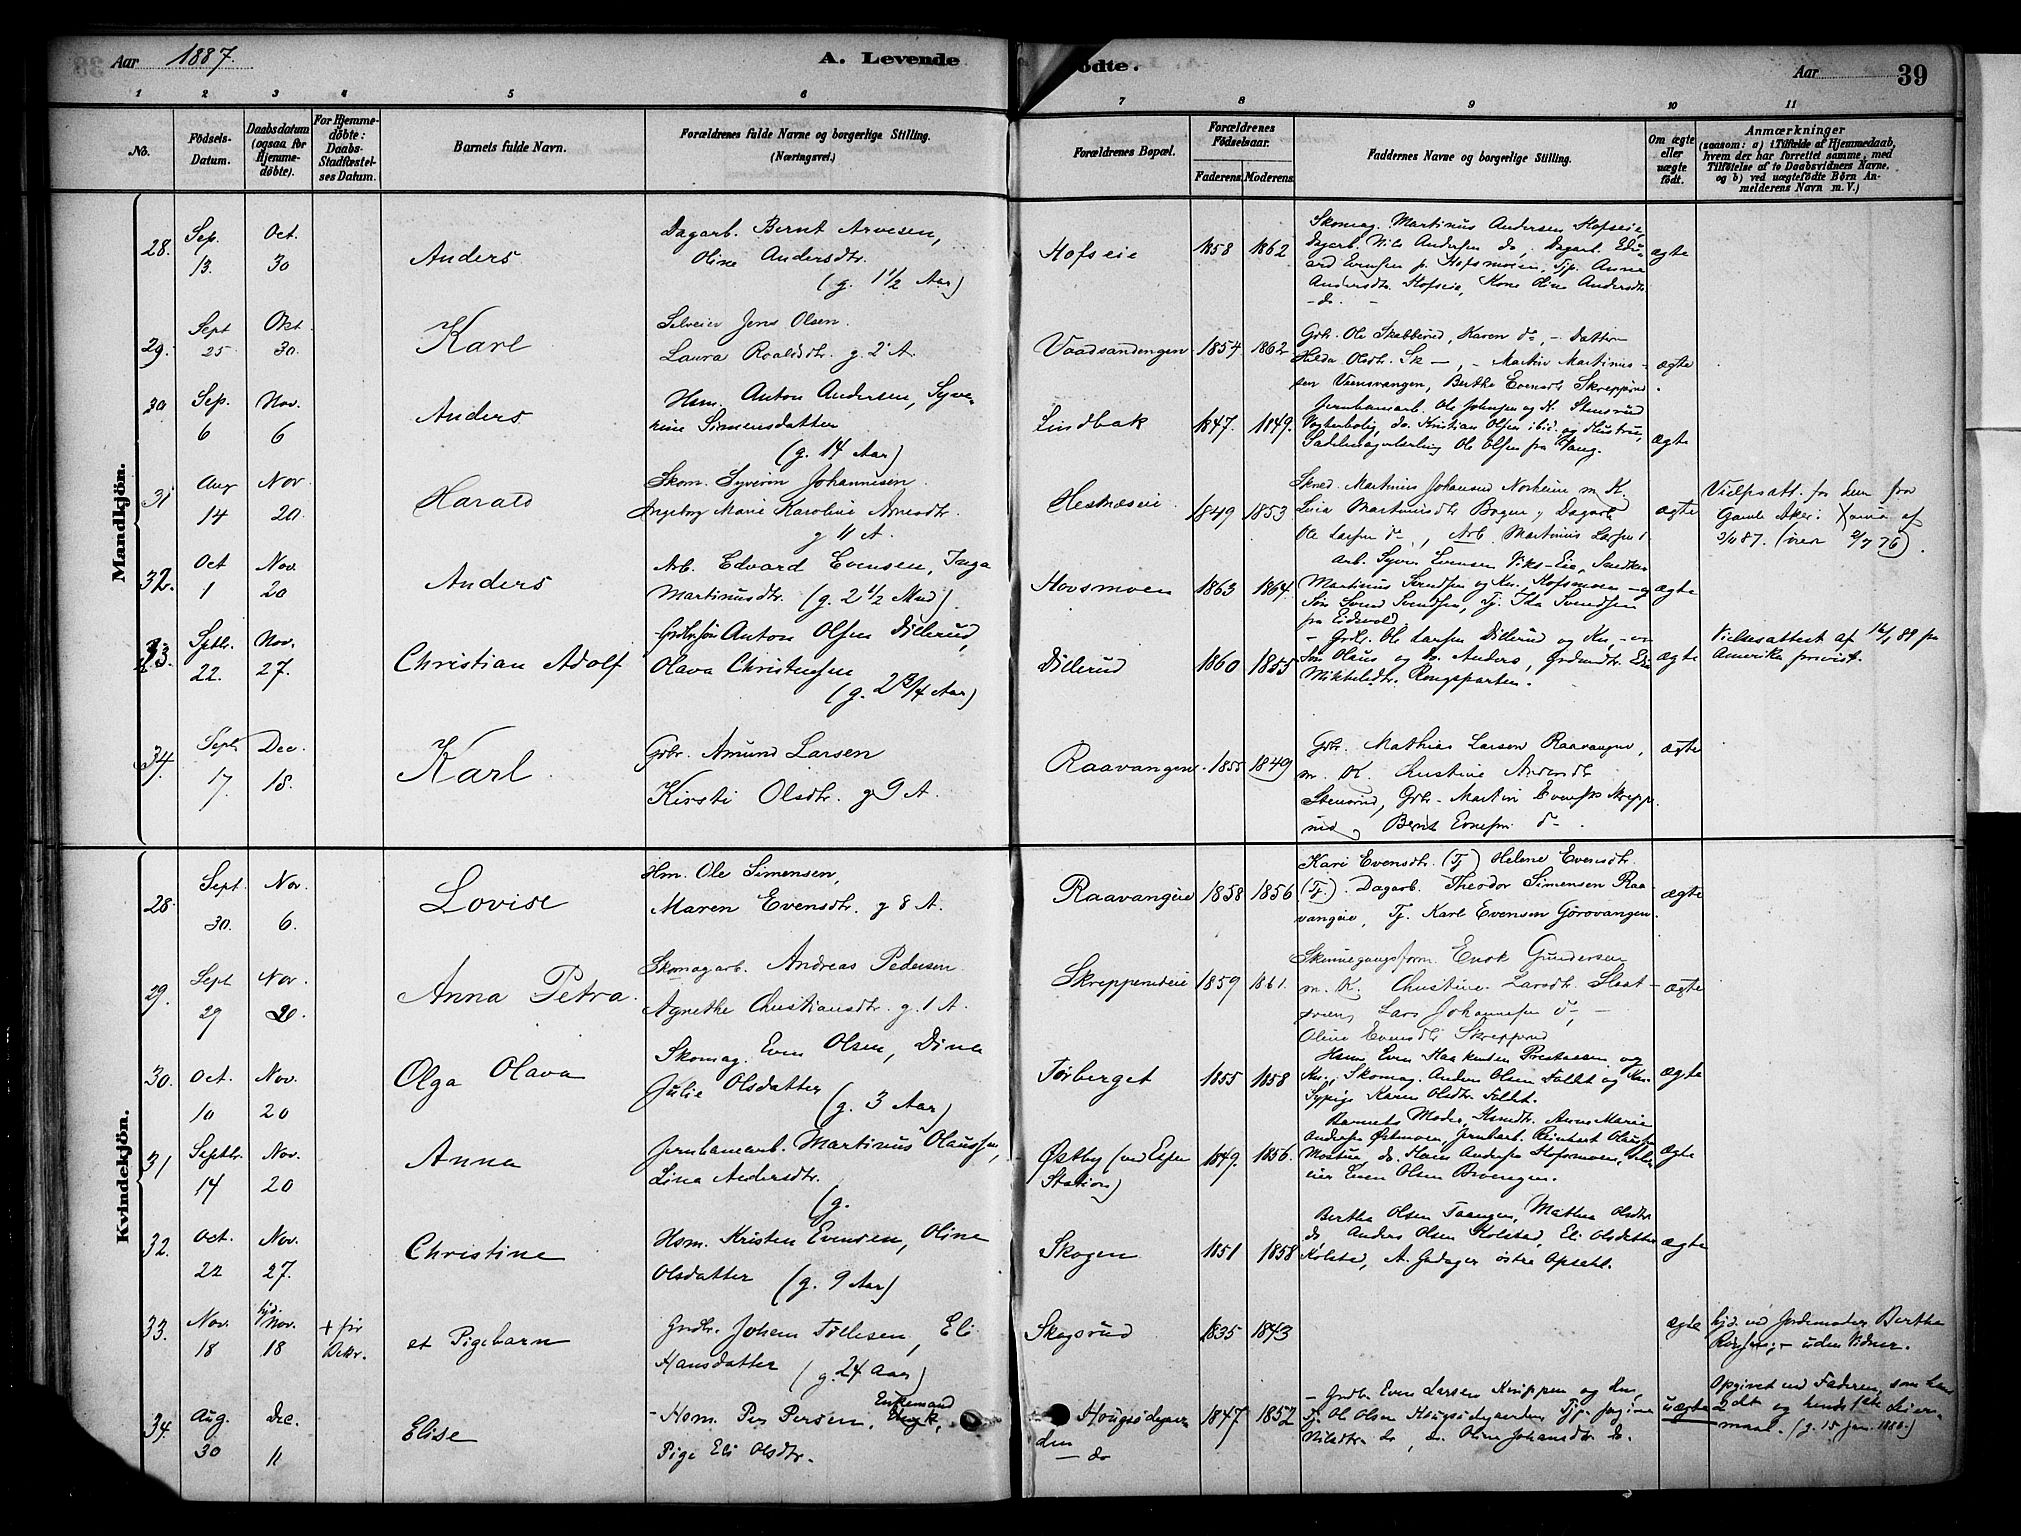 Aar 1887.
A. Levende
ödte.
Aar
39
1 2 3 4 5 6 7 8 9 10 11
No.
Födsels-Datum.
Daabsdatum (ogsaa for Hjemmedöbte).
For Hjemmedöbte: Daabs-Stadfæstelses Datum.
Barnets fulde Navn.
Forældrenes fulde Navne og borgerlige Stilling.
(Næringsvei.)
Forældrenes Bopæl.
Forældrenes Födselsaar.
Faderens. Moderens.
Faddernes Navne og borgerlige Stilling.
Om ægte eller uægte födt.
Anmærkninger
(saasom: a) i Tilfælde af Hjemmedaab,
hvem der har forrettet samme, med
Tilföielse af to Daabsvidners Navne,
og b) ved uægtefödte Börn Anmelderens Navn m. V.)
Mandkjön.
28. Sep. 13. Oct. 30
Anders
Dagarb. Bernt Arvesen,
Oline Andersdtr.
(g. 1 1/2 Aar)
Hofseie 1858 1862
Skomag. Martinus Andersen Hofseie,
Dagarb. Nils Andersen do, Dagarb. Edu-
ard Evensen p. Hofsmoien, Tjp. Anne
Andersdtr. Hofseie, Kone Oline Andersdtr
do.
ægte
29. Sept 25 Okt. 30.
Karl
Selveier Jens Olsen.
Laura Roaldsdtr. g 2 A.
Vaadsandengen 1854 1862
Gbr. Ole Skebberud, Karen do, Datter
Hilda Olsdtr. Sk —, Martin Martinus-
sen Viensvangen, Berthe Evensdtr Skreppsrud.
ægte
30 Sep. 6 Nov. 6
Anders
Hsm. Anton Andersen, Syve-
rine Simensdatter
(g. 14 Aar)
Lindbak 1847. 1849.
Jernbanearb. Ole Johnsen og K. Stensrud
Vogterbolig, do. Kristian Olsen ibid. og Hustru,
Sadelmagerlærling Ole Olsen fra Vang.
ægte
31 Aug 14 Nov 20.
Harald
Skom. Syverin Johannesen.
Ingeborg Marie Karoline Arnesdtr.
g 11 A.
Hestnæseie 1849 1853
Skræd. Martinius Johansen Norheim m. K.
Lisa Martinusdtr Bogen, Dagarb.
Ole Larsen do, Arb. Martinius Larsen
ægte
32. Oct 1 Nov. 20
Anders
Arb. Edvard Evensen, Inga
Martinusdtr. (g. 2 1/2 Mnd).
Hovsmoen 1863 1864.
Arb. Syver Evensen Viks-Eie,
Martinus Svendsen og Kn. Hofsmoen
Søn Svend Svendsen, Tj. Svendsen
fra Eidsvold.
ægte
33. Septbr. 22. Nov. 27.
Christian Adolf
Grdbrsøn Anton Olsen Dillerud,
Olava Christensen
(g. 2 3/4 Aar)
Dillerud 1860 1855
Grbr. Ole Larsen Dillerud og Kn.
Søn Olaus og do. Anders,
Mikkelsdtr. Rongsparten.
ægte
Vielsesattest af 16/1 88 fra
Amerika forevist.
34. Sept 17. Dec. 18.
Karl
Grbr. Amund Larsen
Kirsti Olsdtr. g 9 A.
Raavangen 1855 1849
Grbr. Mathias Larsen Raavangen,
m. K. Christine Andersdtr
Stensrud, Grbr. Martin Evensen Skrepp-
rud, Bernt Evensen do.
ægte
Kvindekjön.
28. Sept. 30. Nov. 6.
Lovise
Hm. Ole Simensen,
Maren Evensdtr. g 8 A.
Raavangeie 1858 1856
Kari Evensdtr. (Tj) Helene Evensdtr.
(Tj). Dagarb. Theodor Simensen Raa-
vangeie, Tj. Karl Evensen Gørovangen.
ægte
29. Sept 29 Nov. 20.
Anna Petra.
Skomagarb. Andreas Pedersen
Agnethe Christiansdtr. g. 1 A.
Skreppsrudeie 1859 1861.
Skinnegangsform. Enok Gundersen
m. K. Christine Larsdtr. Slaat-
Lars Johannesen do,
Oline Evensdtr Skreppsrud
ægte
30. Oct. 10 Nov. 20
Olga Olava
Skomag. Even Olsen, Dina
Julie Olsdatter
(g. 3 Aar)
Tørberget 1855 1858
Hsm. Even Haakensen Prestaasen og
Kn., Skomag. Anders Olsen Foldet og Kn.
Sypige Karen Olsdtr. Foldet.
ægte
31 Septbr. 14 Nov. 20
Anna
Jernbanearb. Martinus Olaussen,
Lina Andersdtr.
(g.
Østby (ved Espen
Station) 1849. 1856.
Barnets Moder, Hsmdtr. Anne Marie
Andersen Østmoen, Jernbarb. Reinhart Olausen
Mostue, do. Hans Andersen Hofsmoen, Selv-
eier Even Olsen Brovengen.
ægte
32. Oct. 22 Nov. 27.
Christine
Hsm. Kristen Evensen, Oline
Olsdatter (g. 9 Aar)
Skogen 1851 1858
Berthe Olsen Taangen, Mathea Olsdtr
do, Anders Olsen Kolstad, Eli Olsdatter
Kolstad, A. Jødager østre Opsahl.
ægte
33. Nov. 18 hjd. Nov. 18 + før Bekr.
et Pigebarn
Grdbr. Johan Tollesen, Eli
Hansdatter (g. 24 Aar)
Skogsrud 1835 1843
ægte
hjd. ved Jordemoder Berthe
uden Vidner.
34. Aug. 30 Dec. 11
Elise
- Hsm. Per Persen, Enkemand
Pige Eli Olsdtr.
Hougsødegaar-
den
do 1847 1852
- Grdb. Even Larsen Knippen og Kn,
Tj. Ole Olsen Hougsødegaarden, Tjp.
Nilsdtr. do, do. Oline Johansdtr. do.
uægte
Opgivet ved Faderen, som hans
2det og hendes 1ste Leier-
maal. (g. 15 Jan. 1888.)